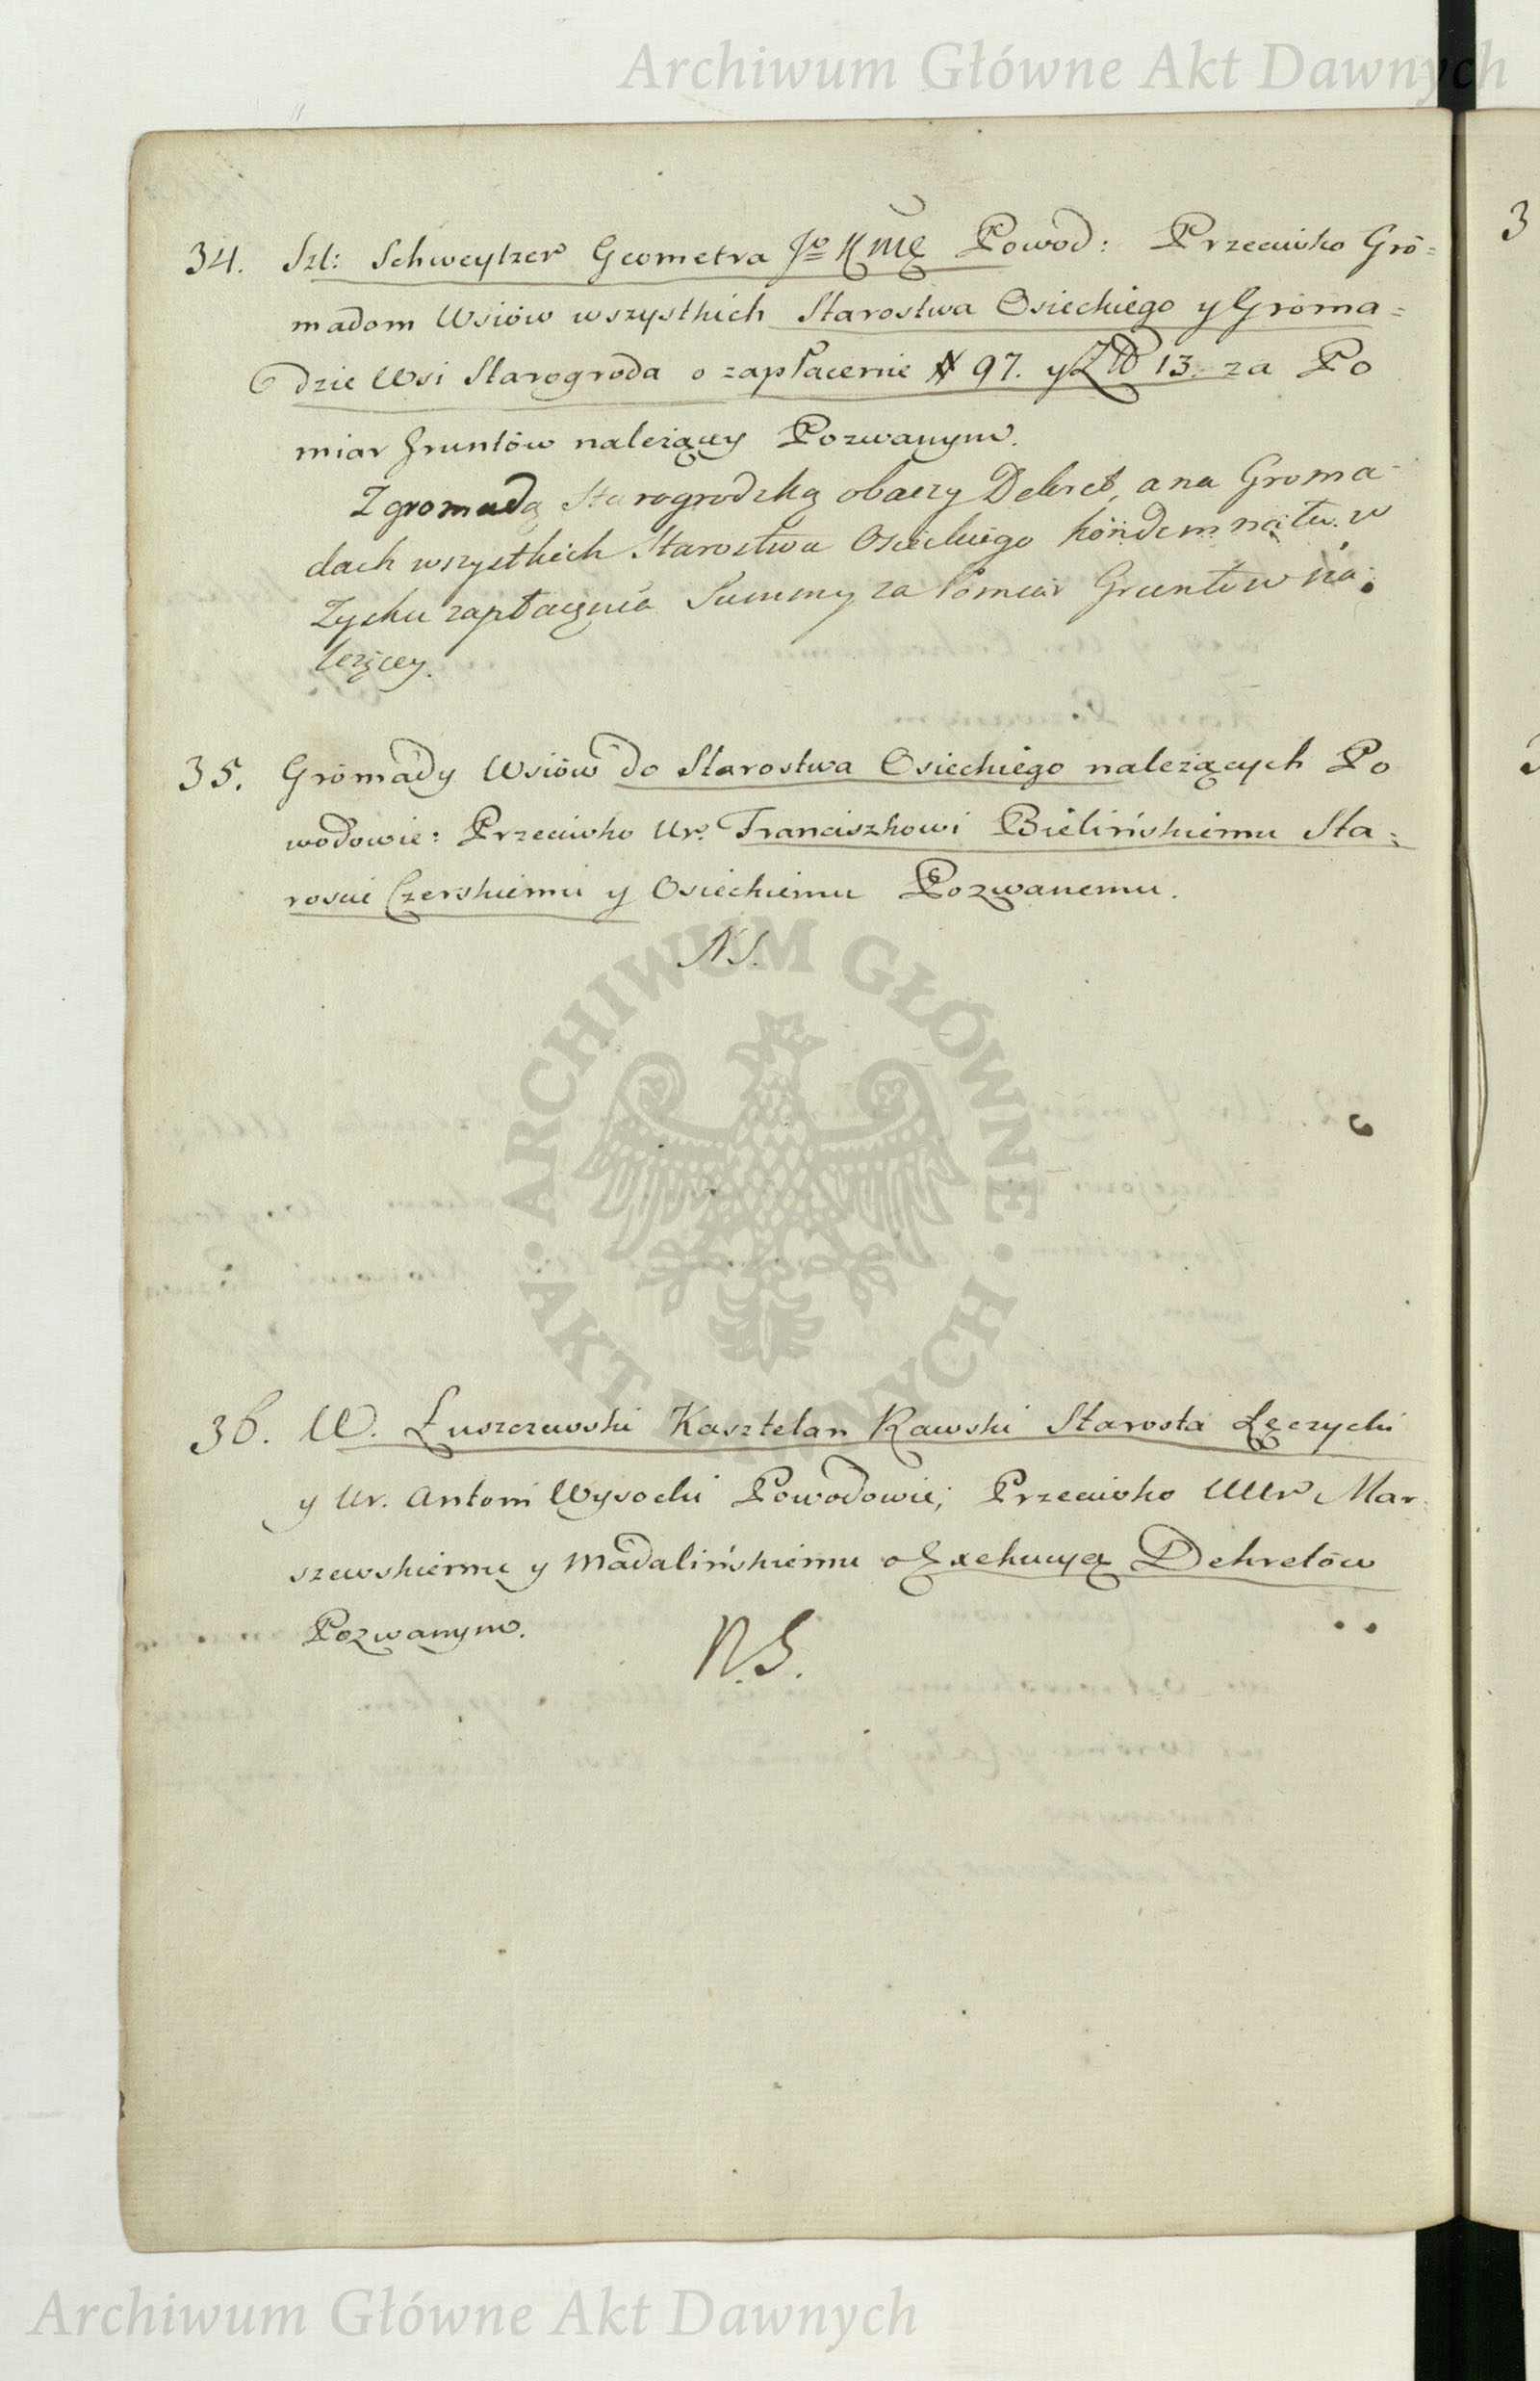 Archiwum Główne Akt Dawnych
34. Szl: Schweytzer Geometra JoKMę Powod: Przeciwko Gro=
madom Wsiów wszystkich Starostwa Osieckiego y Groma=
dzie Wsi Starogroda o zapłacenie # 97. y Zł 13. za Po
miar gruntów należący Pozwanym.
Z gromadą Starogrodzką obaczy Dekret, a na Groma-
dach wszystkich Starostwa Osieckiego kondemnata w
Zysku zapłacenia Summy za Pomiar Gruntów na:
leżącey.
35. Gromady Wsiów do Starostwa Osieckiego należących Po
wodowie: Przeciwko Ur. Franciszkowi Bielińskiemu Sta=
roscie Czerskiemu y Osieckiemu Pozwanemu.
NS.
ARCHIWUM GŁÓWNE AKT DAWNYCH
36. W. Łuszczewski Kasztelan Rawski Starosta Łęczycki
y Ur. Antoni Wysocki Powodowie; Przeciwko UUr Mar=
szewskiemu y Madalińskiemu o Exekucyą Dekretów
Pozwanym.
N.S.
3
Archiwum Główne Akt Dawnych